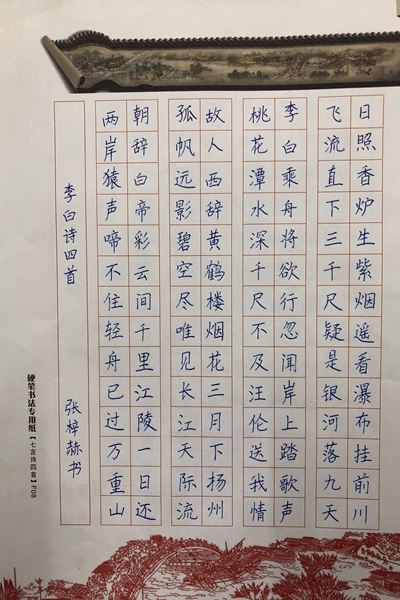 日照香炉生紫烟遥看瀑布挂前川
飞流直下三千尺疑是银河落九天
李白乘舟将欲行忽闻岸上踏歌声
桃花潭水深千尺不及汪伦送我情
故人西辞黄鹤楼烟花三月下扬州
孤帆远影碧空尽唯见长江天际流
朝辞白帝彩云间千里江陵一日还
两岸猿声啼不住轻舟已过万重山
李白诗四首 张梓赫书
硬笔书法专用纸【七言诗四首】F08